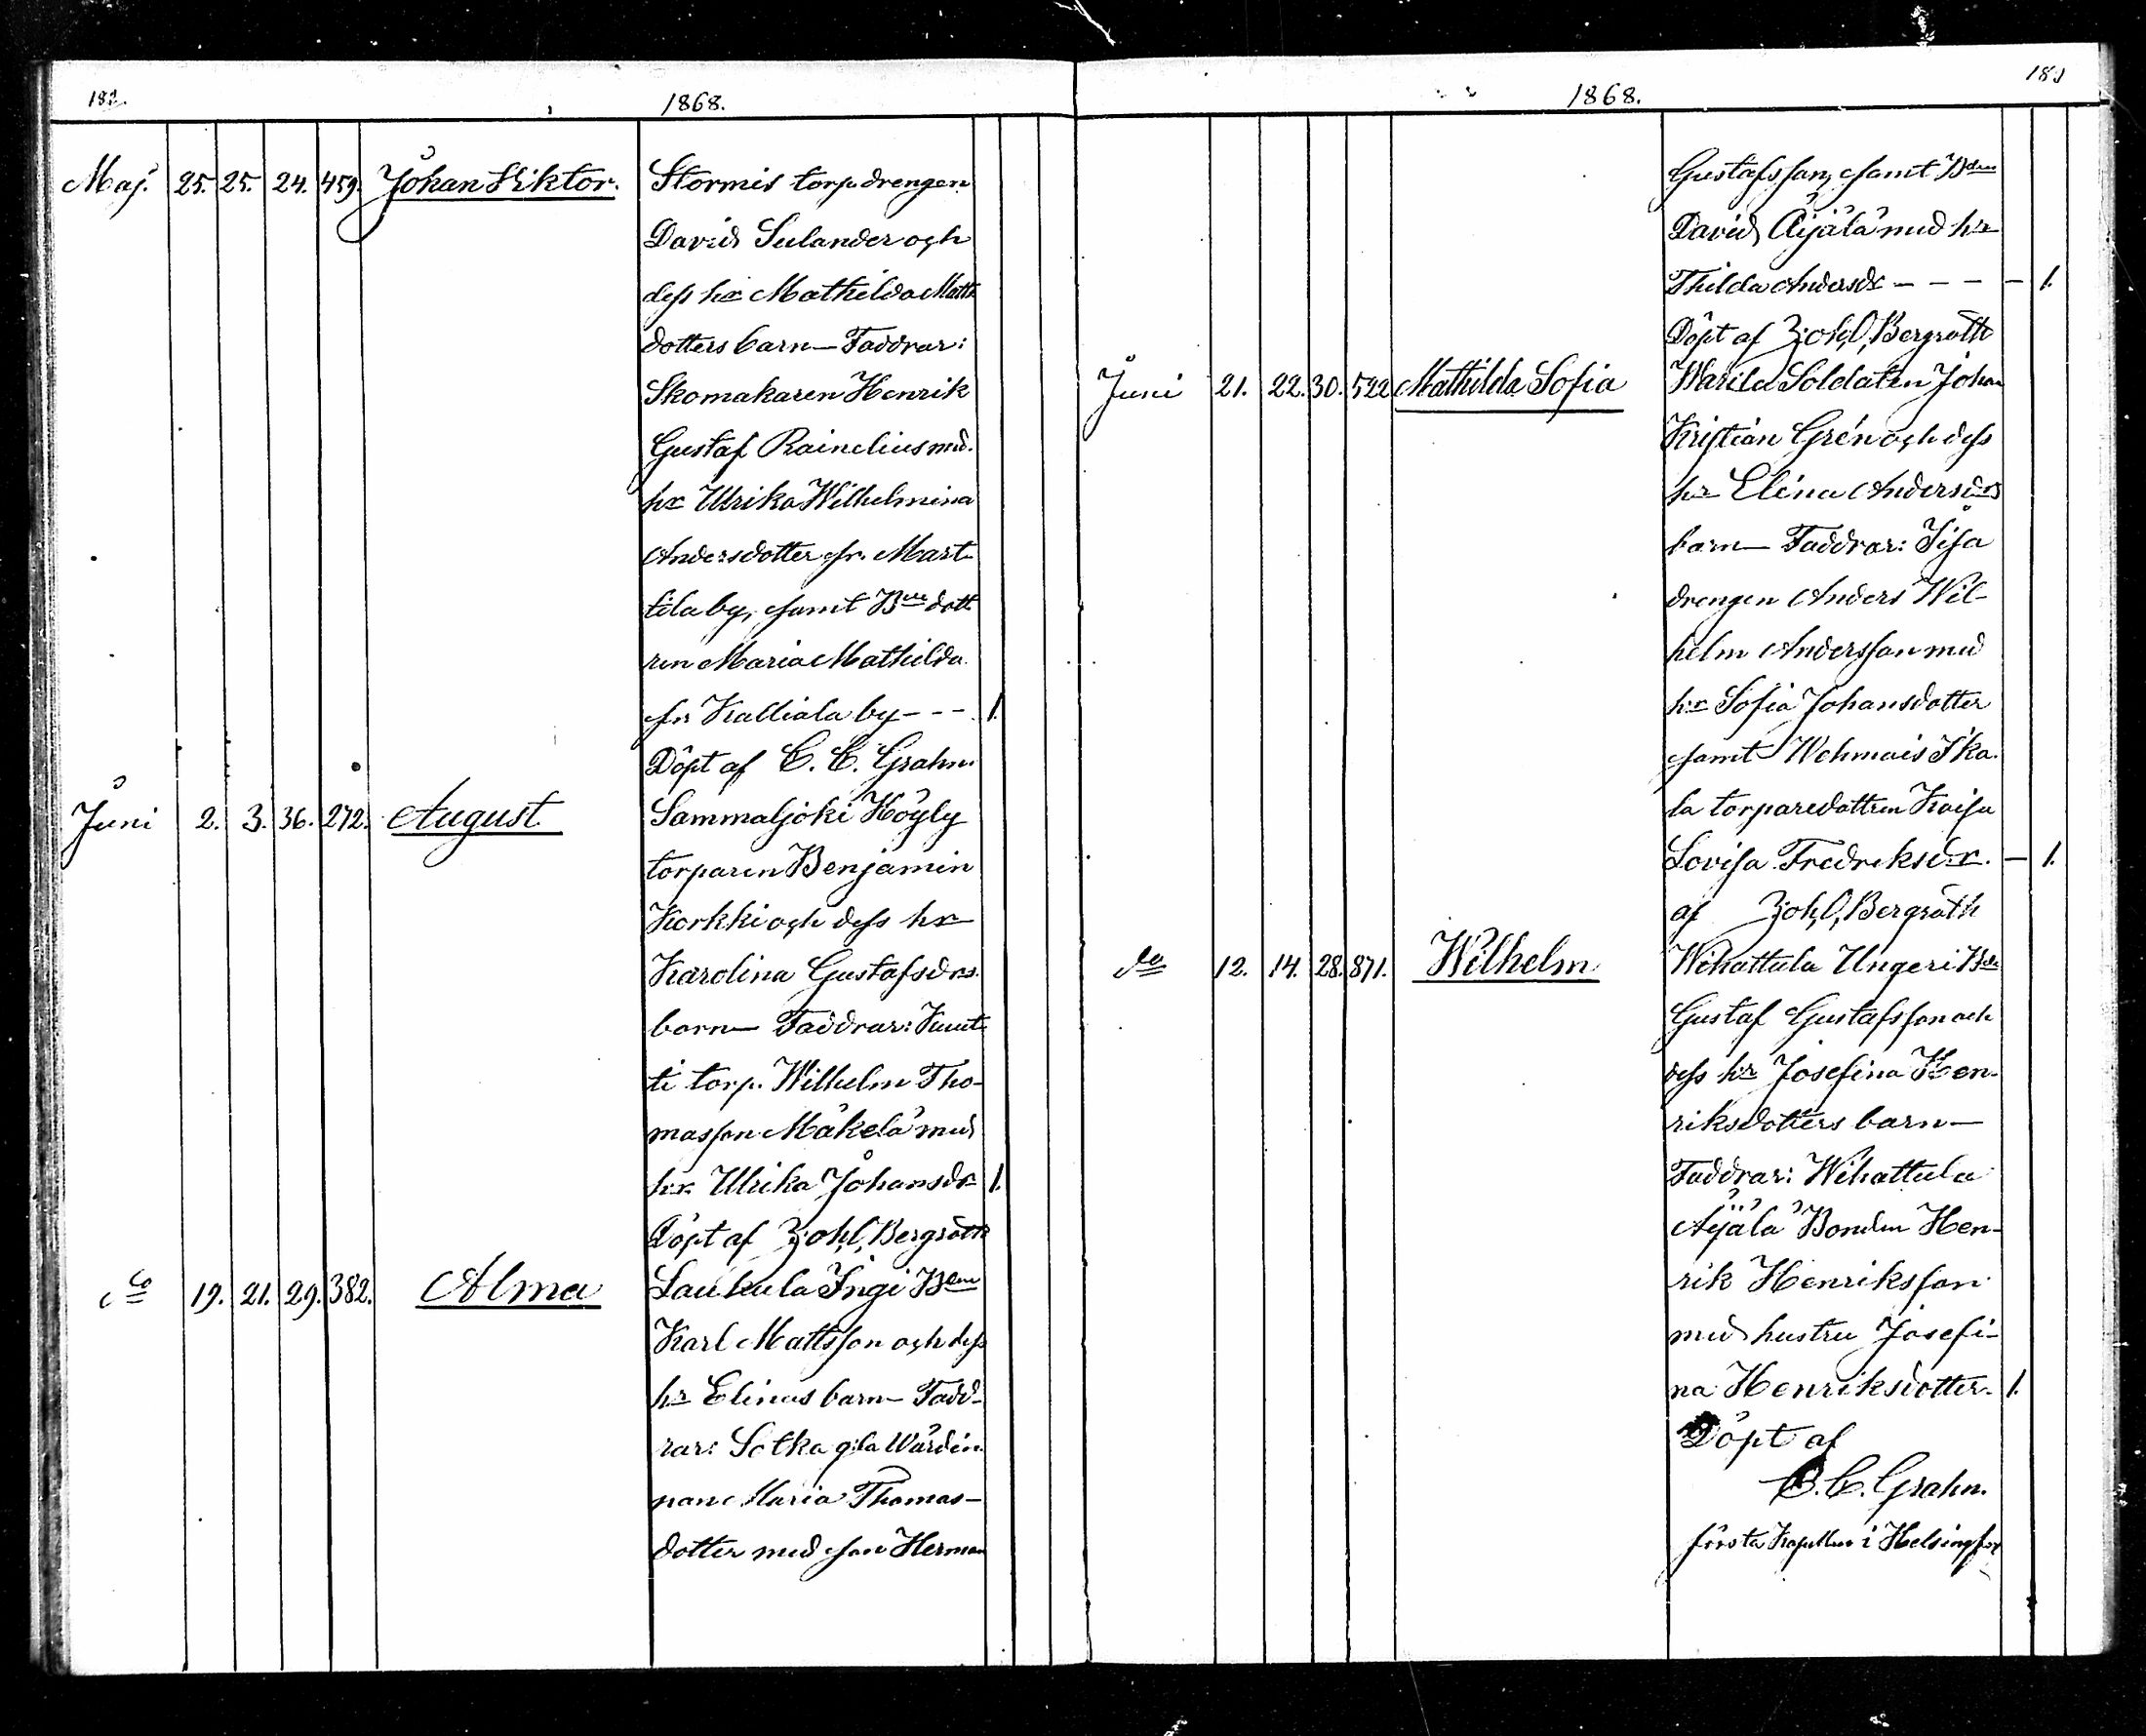 182.
1868.
Maj. 25. 25. 24. 459. Johan Viktor. Stormis torpdrengen
David Sulander och
dess hr Mathilda Matts
dotters barn — Faddrar:
Skomakaren Henrik
Gustaf Rainelius med.
hr Ulrika Wilhelmina
Andersdotter fr. Mart
tila by, samt Bne dott
ren Maria Mathilda
fr Kalliala by - - - 1.
Döpt af C. C. Grahn.
Juni 2. 3. 36. 272. August Sammaljoki Höyly
torparen Benjamin
Korkki och dess hr
Karolina Gustafsdrs.
barn — Faddrar: Kunt
ti torp. Wilhelm Tho-
masson Mäkelä med
hr Ulrika Johansdr 1.
Döpt af Z:oh, Bergroth
do 19. 21. 29. 382. Alma Laukula Ingi Bdn
Karl Mattsson och dess
hr Elinas barn — Fadd-
rar: Sotka g:la Wärdin
nan Maria Thomas-
dotter med son Herman
1868.
Gustafsson, samt Bden
David Äijälä med hr
Thilda Andersdr - - - - 1.
Döpt af Z:oh, Bergroth
Juni 21. 22. 30. 522 Mathilda Sofia Warila Soldaten Johan
Kristian Grén och dess
hr Elina Andersdrs
barn — Faddrar: Jisa
drengen Anders Wil-
helm Andersson med
hr Sofia Johansdotter
samt Wehmais Ika.
la torparedottren Kaisa
Lovisa Fredriksdr. — 1.
af Z:oh, Bergroth
do 12. 14. 28. 871. Wilhelm Wihattula Ungeri Bde
Gustaf Gustafsson och
dess hr Josefina Hen-
riksdotters barn —
Faddrar: Wihattula
Äijälä Bonden Hen-
rik Henriksson
med hustru Josefi-
na Henriksdotter. 1.
Döpt af
C. C. Grahn.
första Kapellan i Helsingfors